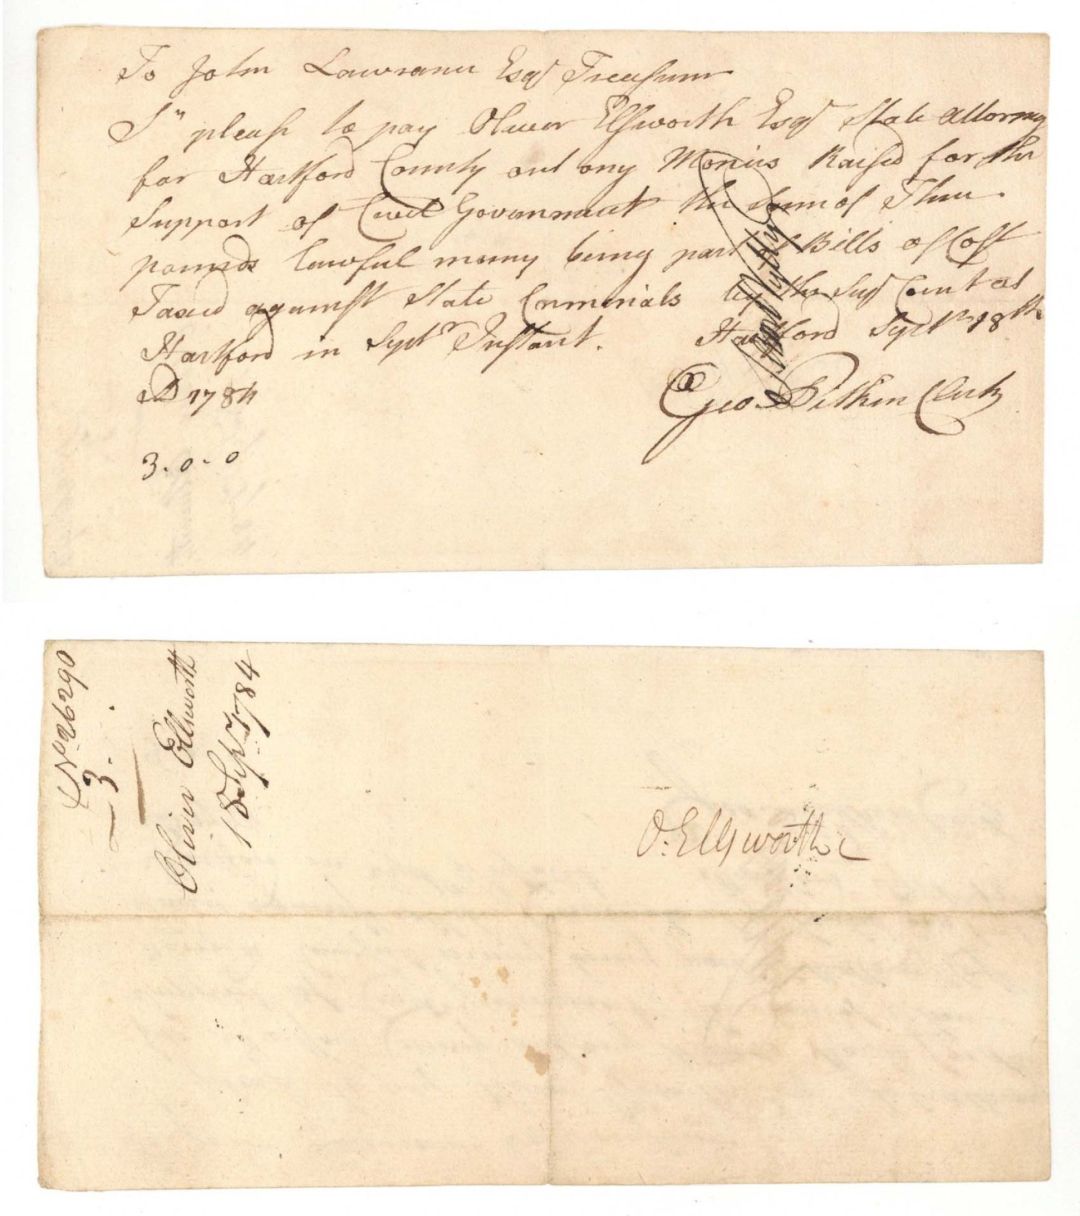 To John Lawrance Esqr Treasurer
Sr please to pay Oliver Ellsworth Esqr State Attorney
for Hartford County out any Monies Raised for the
Support of Civil Government the Sum of Three
pounds lawful money being part of Bills of Cost
Taxed against State Criminals by the Supr Court at
Hartford in Septr Instant. Hartford Septr 18th
AD 1784
Geo Pitkin Clerk
3.0.0
No 26290
£3.
Oliver Ellsworth
18 Sept. 1784
O. Ellsworth